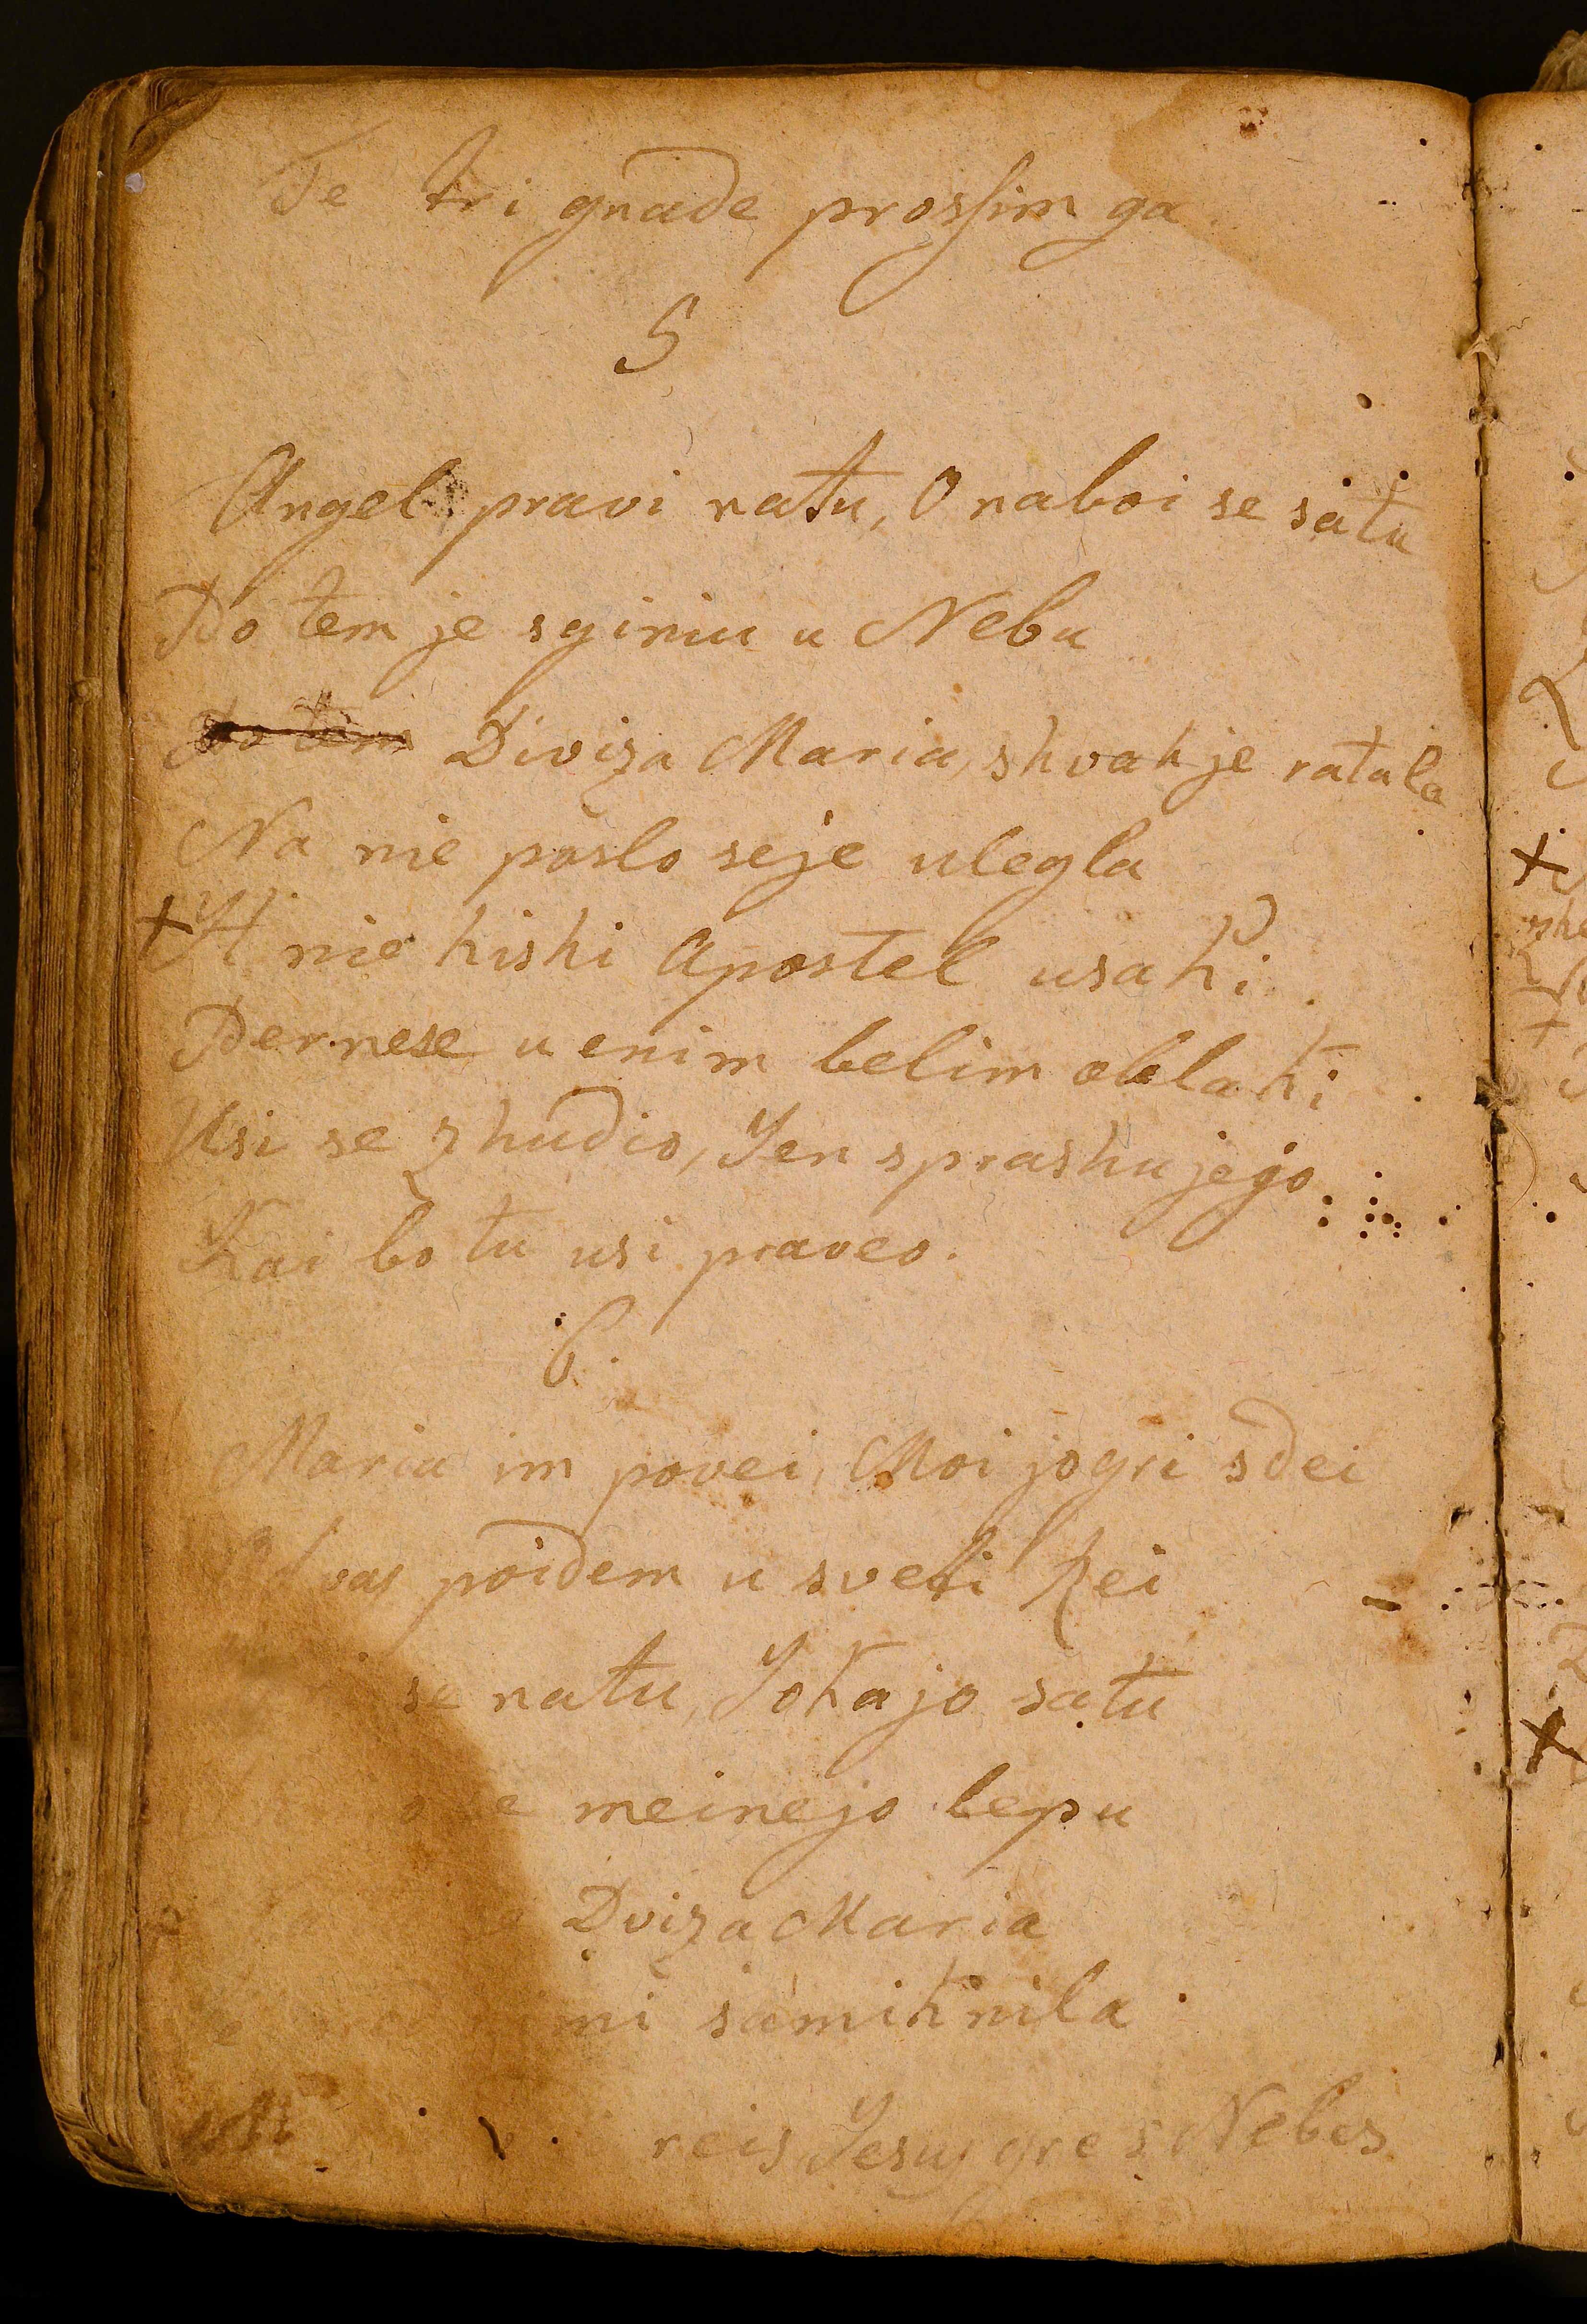 Te tri gnade prossim ga
5
Angel pravi natu, O naboi se satu
Po tem je sginiu u Nebu
Po tem Diviza Maria, shvah je ratala
Na nie poslo seje ulegla
+ H nie hishi Apostel usaki
Pernese u enim belim oblaki
Usi se zhudio, Jen sprashujejo
Kai bo tu usi praveo.
6.
Maria im povei, Moi jogri sdei
vas poidem u sveti Rei
se natu, Jokajo satu
meinejo lepu
Dviza Maria
mi samiknila
reis Jesus gre s Nebes